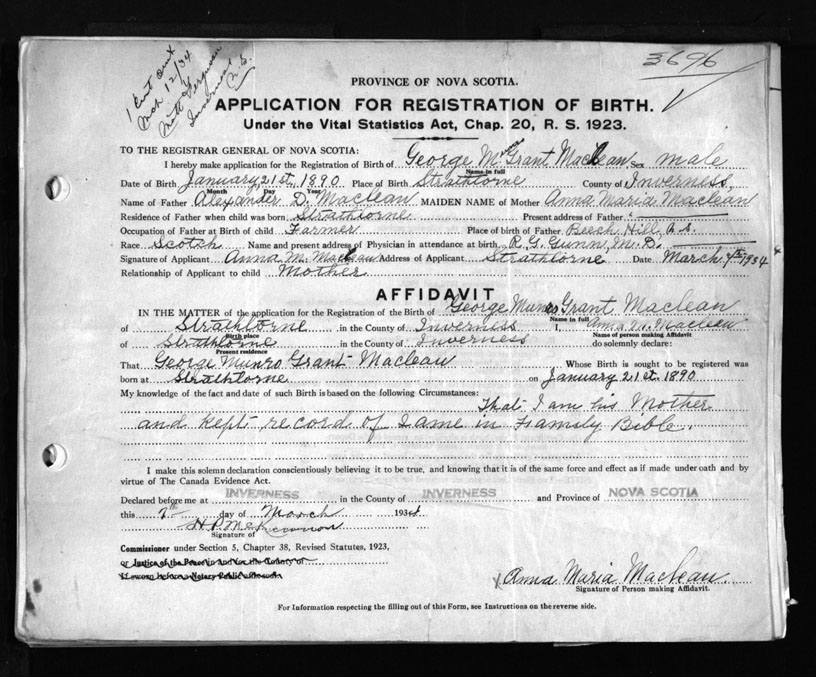 3696
1 Cert Sent
Mch 12/34
Ferguson
Inverness
N.S.
PROVINCE OF NOVA SCOTIA.
APPLICATION FOR REGISTRATION OF BIRTH.
Under the Vital Statistics Act, Chap. 20, R. S. 1923.
TO THE REGISTRAR GENERAL OF NOVA SCOTIA:
I hereby make application for the Registration of Birth of George M Grant Maclean Sex male
Name in full
Date of Birth January, 21st, 1890 Place of Birth Strathlorne County of Inverness,
Month Day Year
Name of Father Alexander D. Maclean MAIDEN NAME of Mother Anna Maria Maclean
Residence of Father when child was born Strathlorne Present address of Father
Occupation of Father at Birth of child Farmer Place of birth of Father Beech Hill, N.S.
Race Scotch Name and present address of Physician in attendance at birth R. G. Gunn, M. D.
Signature of Applicant Anna M. Maclean Address of Applicant Strathlorne Date March 7th 1934
Relationship of Applicant to child Mother
AFFIDAVIT
IN THE MATTER of the application for the Registration of the Birth of George Munro Grant Maclean
Name in full
of Strathlorne in the County of Inverness I, Anna M. Maclean
Birth place Name of person making Affidavit
of Strathlorne in the County of Inverness do solemnly declare:
Present residence
That George Munro Grant Maclean Whose Birth is sought to be registered was
born at Strathlorne on January 21st. 1890
My knowledge of the fact and date of such Birth is based on the following Circumstances:
That I am his Mother
and kept record of same in Family Bible.
I make this solemn declaration conscientiously believing it to be true, and knowing that it is of the same force and effect as if made under oath and by
virtue of The Canada Evidence Act.
Declared before me at INVERNESS in the County of INVERNESS and Province of NOVA SCOTIA
this 7th day of March 1934
H. P. McKinnon
Signature of
Commissioner under Section 5, Chapter 38, Revised Statutes, 1923,
or Justice of the Peace in and for the County of
If sworn before a Notary Public affix seal
Anna Maria Maclean
Signature of Person making Affidavit.
For Information respecting the filling out of this Form, see Instructions on the reverse side.